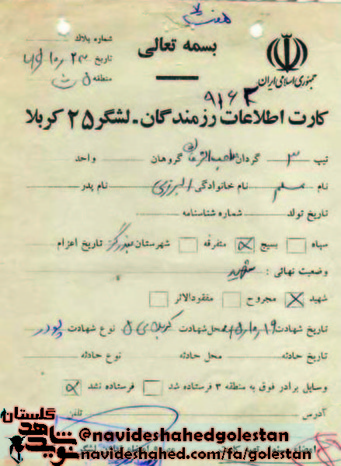 بسمه تعالی
شماره پلاک
تاریخ
منطقه
جمهوری اسلامی ایران
۹۱۶۳
کارت اطلاعات رزمندگان - لشگر ۲۵ کربلا
تیپ ۳ گردان گروهان واحد
نام مسلم نام خانوادگی البرزی نام پدر
تاریخ تولد شماره شناسنامه
سپاه بسیج متفرقه شهرستان بندرگز تاریخ اعزام
وضعیت نهائی: شهید
شهید مجروح مفقودالاثر
تاریخ شهادت محل شهادت کربلای ۵ نوع شهادت
تاریخ حادثه محل حادثه نوع حادثه
وسایل برادر فوق به منطقه ۳ فرستاده شد فرستاده نشد
آدرس تلفن
گلستان
نوید شاهد
@navideshahedgolestan
navideshahed.com/fa/golestan